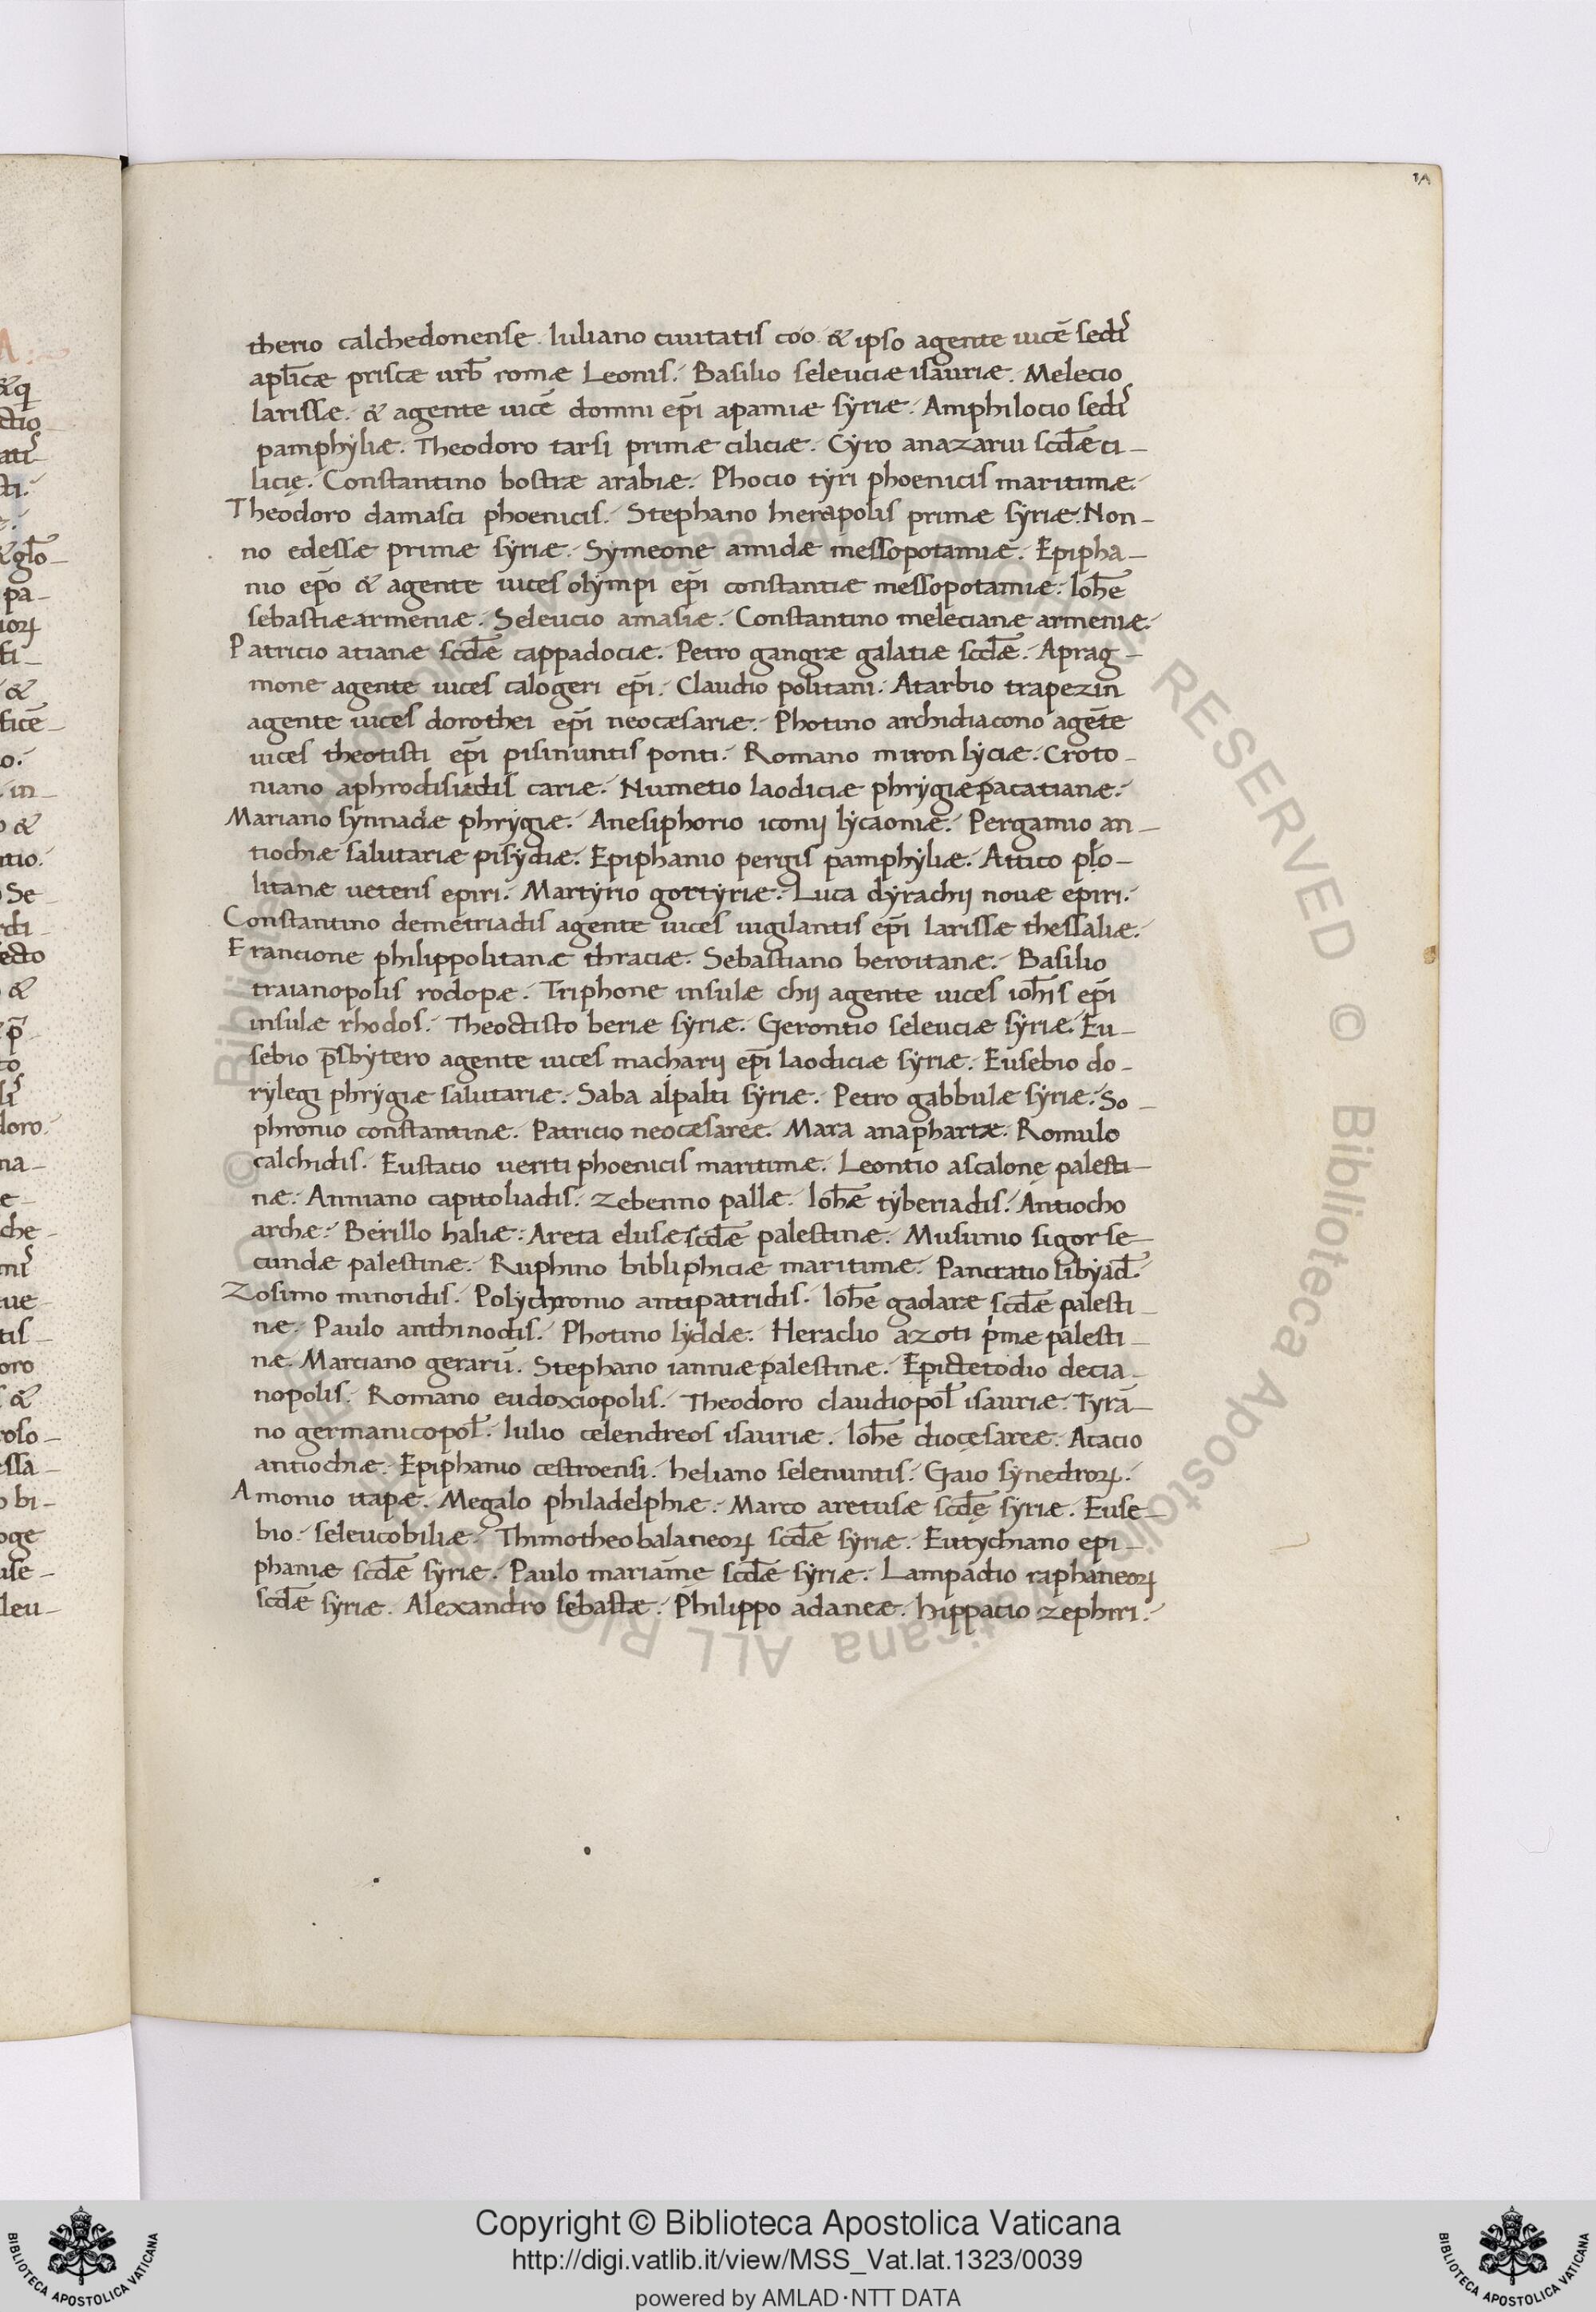 therio calchedonense. Iuliano ciuitatis coo. & ipso agente uicē sedis
apl̄icæ priscæ urb̄ romæ Leonis. Basilio seleuciæ isauriæ. Melecio
larissæ. & agente uicē domni ep̄i apamiæ syriæ. Amphilocio sedis
pamphyliæ. Theodoro tarsi primæ ciliciæ. Cyro anazarui scd̄æ ci–
licię. Constantino bostræ arabiæ. Phocio tyri phoenicis maritimæ.
Theodoro damasci phoenicis. Stephano hierapolis primæ syriæ. Non–
no edessæ primæ syriæ. Symeone amidæ messopotamiæ. Epipha–
nio ep̄o & agente uices olympi ep̄i constantiæ messopotamiæ. Ioh̄e
sebastiæ armeniæ. Seleucio amasiæ. Constantino melecianæ armeniæ.
Patricio atianæ scd̄æ cappadociæ. Petro gangræ galatiæ scd̄æ. Aprag–
mone agente uices calogeri ep̄i. Claudio politani. Atarbio trapezin
agente uices dorothei ep̄i neocæsariæ. Photino archidiacono agēte
uices theotisti ep̄i pisinuntis ponti. Romano miron lyciæ. Croto–
niano aphrodisiedis cariæ. Numetio laodiciæ phrygiæ pacatianæ.
Mariano synnadæ phrygiæ. Anesiphorio iconij lycaoniæ. Pergamio an–
tiochiæ salutariæ pisydiæ. Epiphanio pergis pamphyliæ. Attico
litanæ ueteris epiri. Martyrio gortyriæ. Luca dyrachij nouæ epiri.
Constantino demetriadis agente uices uigilantis ep̄i larissæ thessaliæ.
Francione philippolitanæ thraciæ. Sebastiano beroitanæ. Basilio
traianopolis rodopæ. Triphone insulæ chij agente uices ioh̄is ep̄i
insulæ rhodos. Theoctisto beriæ syriæ. Gerontio seleuciæ syriæ. Eu–
sebio p̄sbytero agente uices macharij ep̄i laodiciæ syriæ. Eusebio do–
rylegi phrygiæ salutariæ. Saba alpalti syriæ. Petro gabbulæ syriæ. So–
phronio constantinæ. Patricio neocæsareę. Mara anaphartæ. Romulo
calchidis. Eustacio ueriti phoenicis maritimæ. Leontio ascalonę palesti–
næ. Anniano capitoliadis. Zebenno pallæ. Ioh̄æ tyberiadis. Antiocho
archæ. Berillo haliæ. Areta elusæ scd̄æ palestinæ. Musunio sigor se–
cundæ palestinæ. Ruphino bibliphiciæ maritimæ. Pancratio libyad̄.
Zosimo minoidis. Polychronio antipatridis. Ioh̄e gadaræ scd̄æ palesti–
næ. Paulo anthinodis. Photino lyddæ. Heraclio azoti p̄mæ palesti–
næ. Marciano gerarū. Stephano ianniæ palestinæ. Epictetodio decia–
nopolis. Romano eudoxiopolis. Theodoro claudiopol̄ isauriæ. Tyrā–
no germanicopol̄. Iulio celendreos isauriæ. Ioh̄e diocęsareæ. Acacio
antiochiæ. Epiphanio cestroensi. heliano selenuntis. Gaio synedroꝝ.
Amonio itapæ. Megalo philadelphiæ. Marco aretusæ scd̄ę syriæ. Euse–
bio seleucobiliæ. Thimotheo balaneoꝝ scd̄æ syriæ. Eutychiano epi–
phaniæ scd̄æ syriæ. Paulo mariāmę scd̄æ syriæ. Lampadio raphaneoꝝ
scd̄æ syriæ. Alexandro sebastæ. Philippo adaneæ. hippacio zephiri.
Copyright © Biblioteca Apostolica Vaticana
http://digi.vatlib.it/view/MSS_Vat.lat.1323/0039
powered by AMLAD·NTT DATA